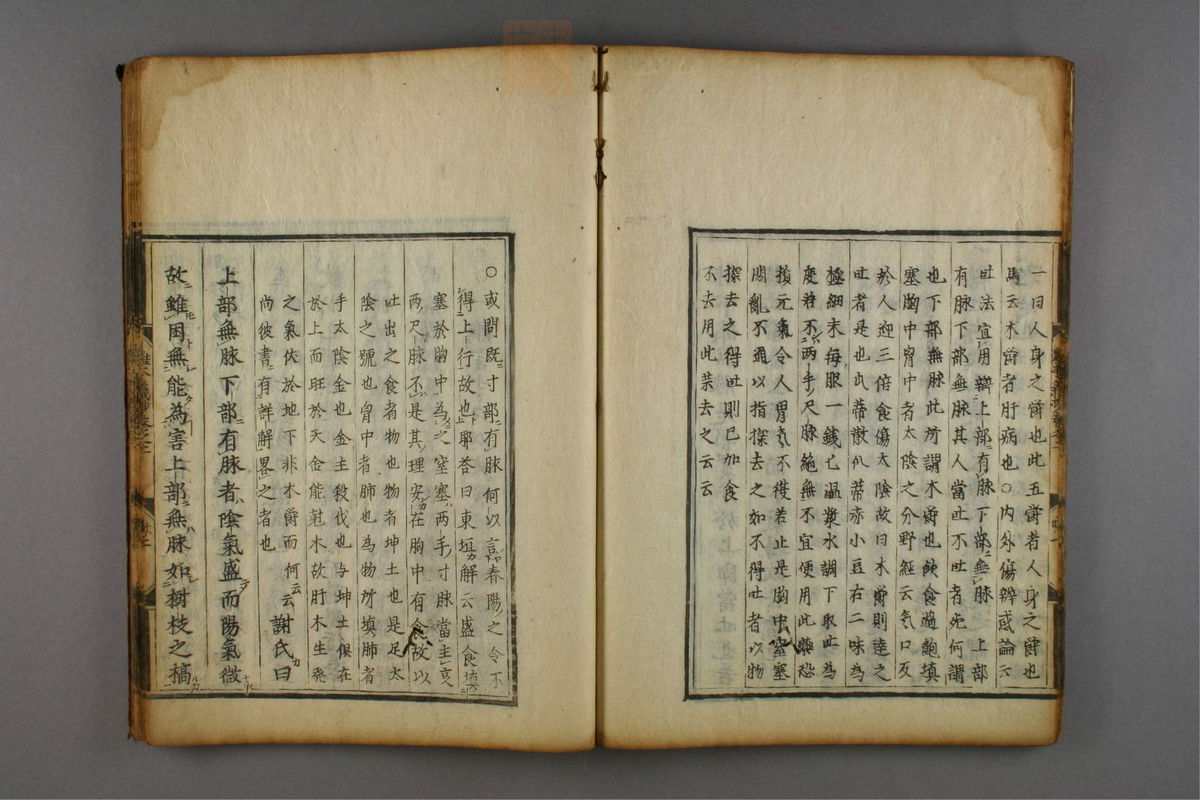 一曰人身之欝也此五欝者人身之欝也
馬云木欝者肝病也○内外傷辨惑論云
吐法宜用辨上部有脉下部無脉 上部
有脉下部無脉其人當吐不吐者死何謂
也下部無脉此所謂木欝也飲食過飽填
塞胸中胷中者太陰之分野經云氣口反
於人迎三倍食傷太陰故曰木欝則達之
吐者是也瓜蒂散瓜蒂赤小豆右二味為
極細末每服一錢匕温漿水調下取吐為
度若不两手尺脉絶無不宜便用此藥恐
損元氣令人胃氣不復若止是胸中窒塞
悶亂不通以指探去之如不得吐者以物
探去之得吐則已如食
不去用此藥去之云云
○或問既寸部有脉何以言春陽之令不
得上行故也耶荅曰東垣解云盛食填
塞於胸中為之窒塞两手寸脉當主
两尺脉不是其理安在胸中有食故以
吐出之食者物也物者坤土也是足太
陰之號也胷中者肺也為物所填肺者
手太陰金也金主殺伐也与坤土俱在
於上而旺於天金能尅木故肝木生發
之氣伏於地下非木欝而何云云謝氏曰
尚彼書有詳解畧之者也
上部無脉下部有脉者陰氣盛而陽氣微
故雖困無能為害上部無脉如樹枝之槁